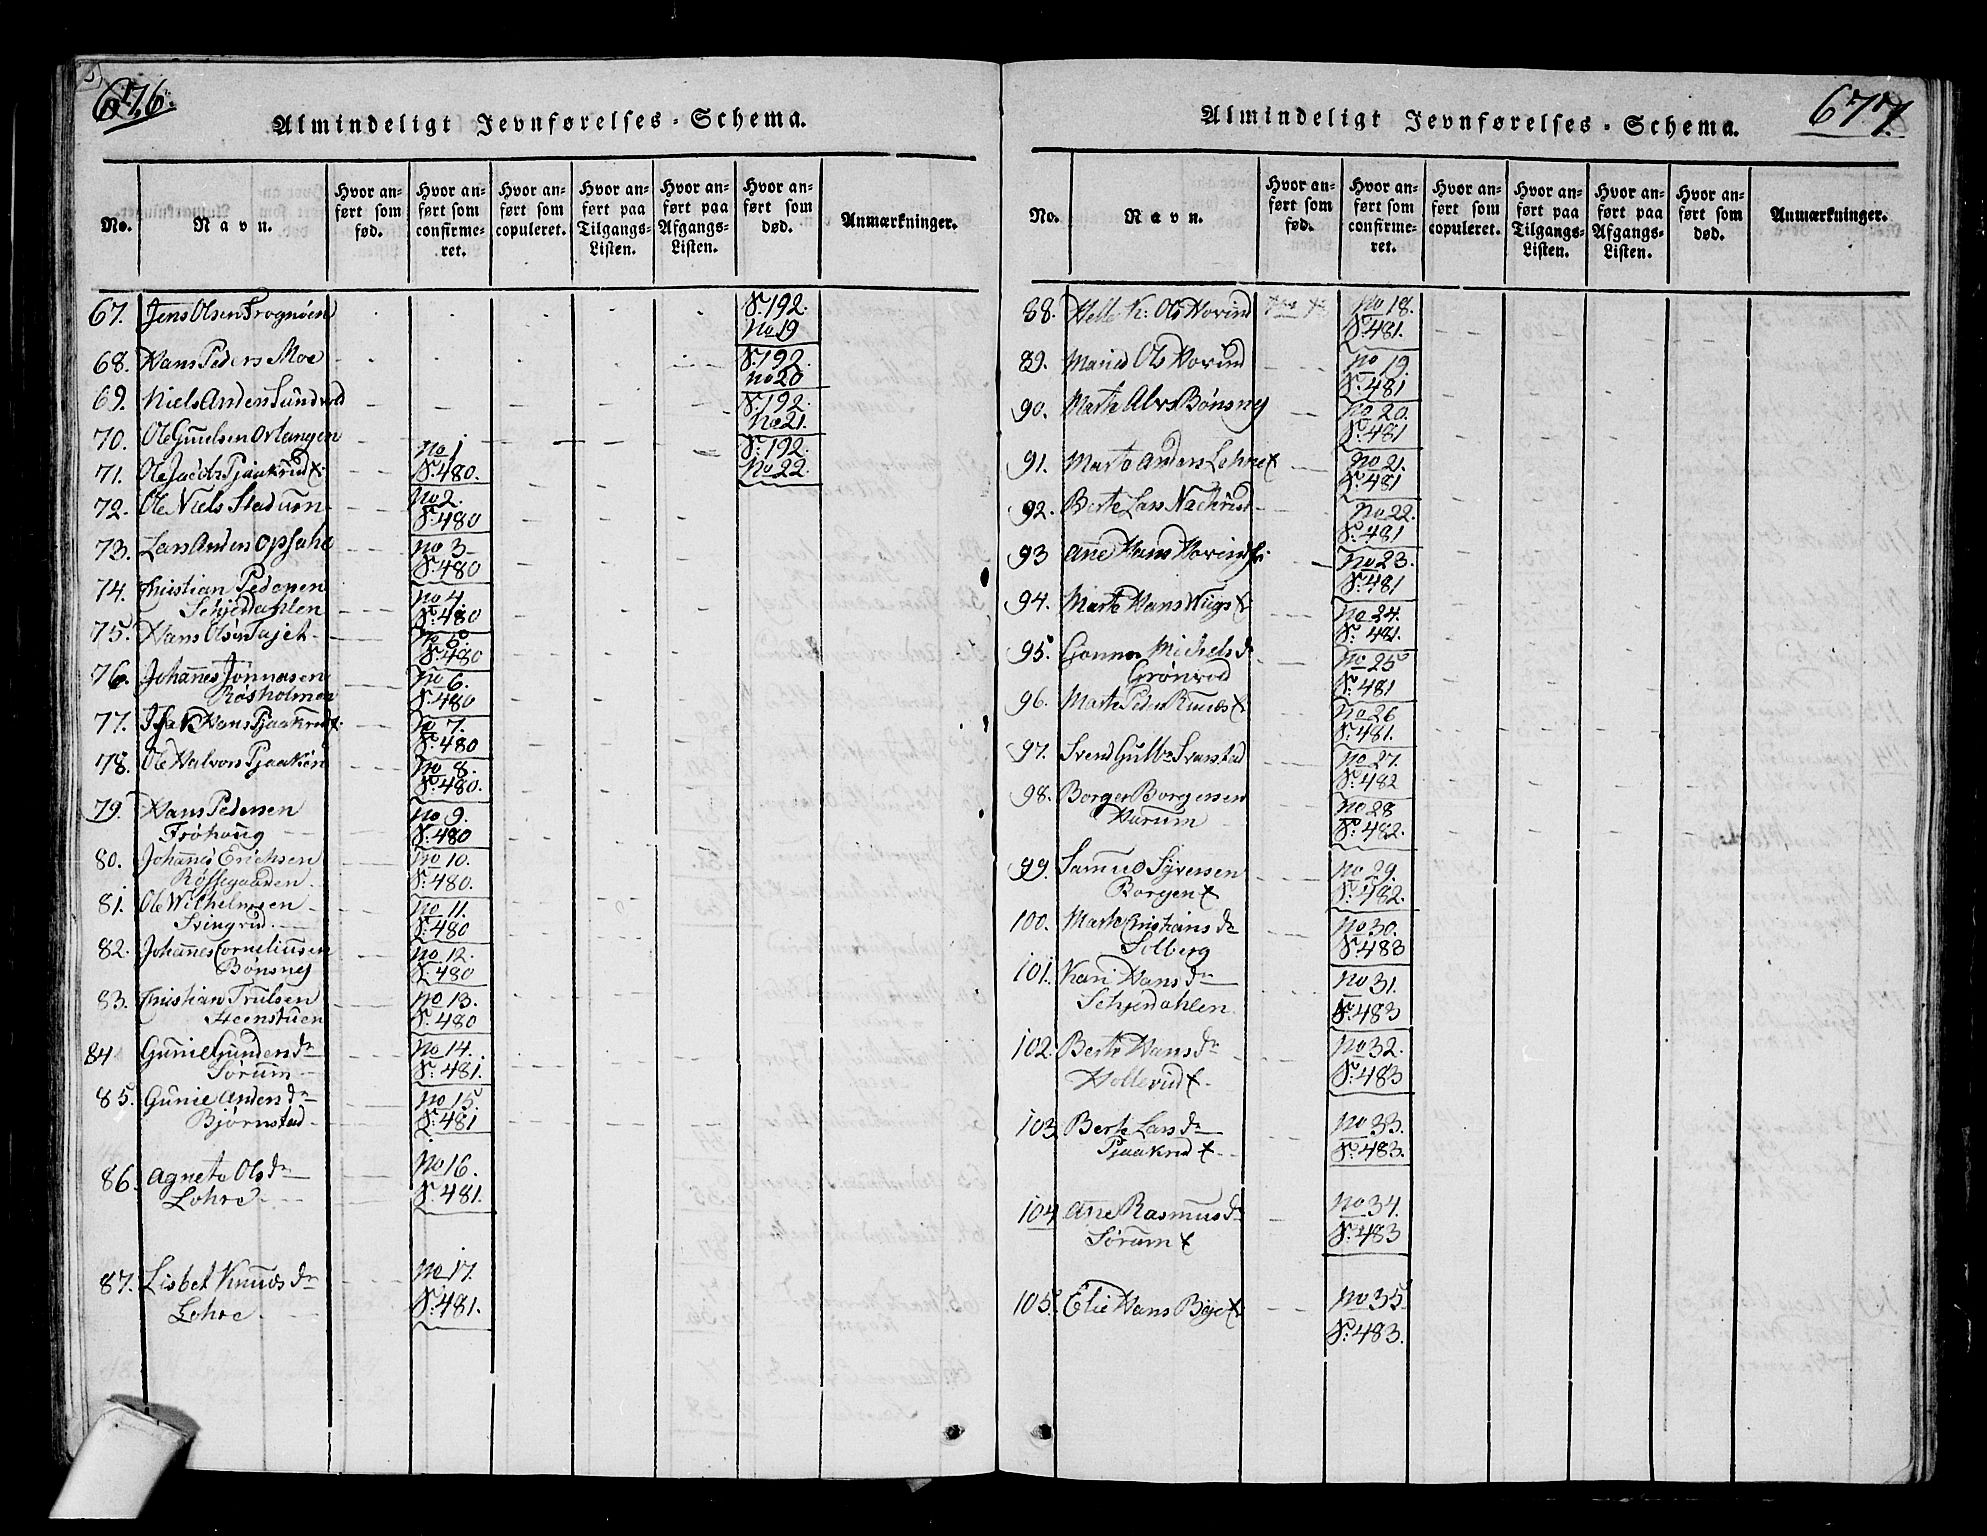 676.
Almindeligt Jevnførelses-Schema.
No.
Navn.
Hvor anført som fød.
Hvor anført som confirmeret.
Hvor anført som copuleret.
Hvor anført paa Tilgangs-Listen.
Hvor anført paa Afgangs-Listen.
Hvor anført som død.
Anmærkninger.
67. Jens Olsen Frognøen S. 192. No 19
68. Hans Peders Moe S. 192. No 20
69. Niels Anders Sundvod S. 192. No 21.
70. Ole Gulsen S. 192. No 22.
71. Ole Jacobs Pjaakrud No 1 S. 480.
72. Ole Niels No 2. S. 480
73. Lars Anders Opsahl No 3 S. 480
74. Christian Pedersen
Schjerdahlen No 4. S. 480
75. Hans Olsen Tajet No 5. S. 480
76. Johanes Jonnasen
Røsholmen No 6. S. 480
77. Isak Hans Pjaakrud No 7. S. 480
78. Ole Halvors Pjaaken No 8. S. 480.
79. Hans Pedersen
Frøhoug No 9. S. 480
80. Johanes Erichsen
No 10. S. 480.
81. Ole Wilhelmsen
Svingrud No 11. S. 480
82. Johanes Corneliusen
Bønsnes No 12. S. 480
83. Christian Trulsen
Steenstuen No 13. S. 480
84 Gunil Gunders dr
Sørum No 14. S. 481.
85. Gunie Anders dr
Bjørnstad No 15. S. 481
86. Agnete Ols dr
Lohre No 16. S. 481.
87. Lisbet Knuds dr
Lohre. No 17. S. 481.
677.
Almindeligt Jevnførelses-Schema.
No.
Navn.
Hvor anført som fød.
Hvor anført som confirmeret.
Hvor anført som copuleret.
Hvor anført paa Tilgangs-Listen.
Hvor anført paa Afgangs-Listen.
Hvor anført som død.
Anmærkninger.
88. Helle K: Ols Hovind No 18. S. 481.
89. Maria Ols Hovind No 19. S. 481
90. Marthe Bønsnes No 20. S. 481
91. Marte Anders Lohre No 21. S. 481
92. Berte Lars No 22. S. 481
93 Ane Hans Hovind No 23. S. 481
94. Marte Hans Wiigs No 24. S. 481.
95. Gonner Michels dr
Grønvod No 25 S. 481
96. Marte Peder Knuds No 26 S. 481.
97. Svend Gulbr Svarstad No 27. S. 482
98. Borger Borgersen
Harum No 28 S. 482.
99. Samuel Syversen
Borgen No 29. S. 482.
100. Marte Christians dr
Solberg No 30. S. 483
101. Kari Hans dr
Schjerdahlen No 31. S. 483
102. Berte Hans dr
Hollerud No 32. S. 483
103. Berte Lars dr
Pjaakrud No 33. S. 483.
104 Ane Rasmus dr
Sørum No 34. S. 483
105. Elie Hans Bye No 35 S. 483.